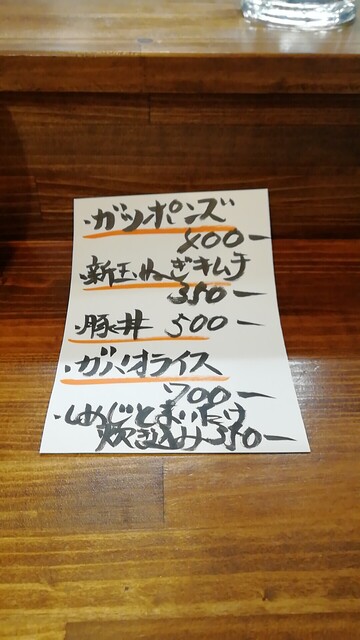 ・ガツポンズ
400ー
・新玉ねぎキムチ
350ー
・豚丼 500ー
・ガパオライス
700ー
・しめじとまいたけ
炊き込み 350ー